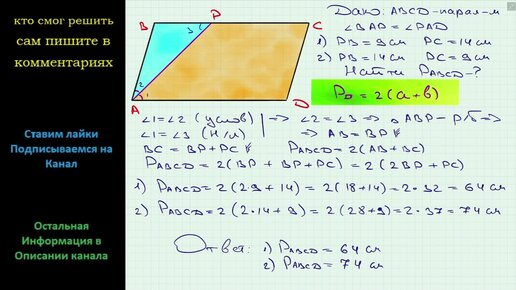 кто смог решить
сам пишите в
комментариях
Ставим лайки
Подписываемся на
Канал
Остальная
Информация в
Описании канала
B P C
3
2
1
A D
Дано: ABCD-парал-м
∠BAP = ∠PAD
1) PB = 9см PC = 14см
2) PB = 14см PC = 9см
Найти PABCD-?
P▱ = 2(a+b)
∠1=∠2 (услов) | => ∠2=∠3 => △ABP – р/б =>
∠1=∠3 (Н/л) | => AB=BP
BC = BP+PC PABCD= 2(AB+BC)
PABCD= 2(BP + BP+PC) = 2(2BP+PC)
1) PABCD= 2(2·9+14)= 2(18+14)=2·32 = 64см
2) PABCD= 2(2·14+9)= 2(28+9)=2·37= 74см
Ответ: 1) PABCD=64см
2) PABCD= 74см